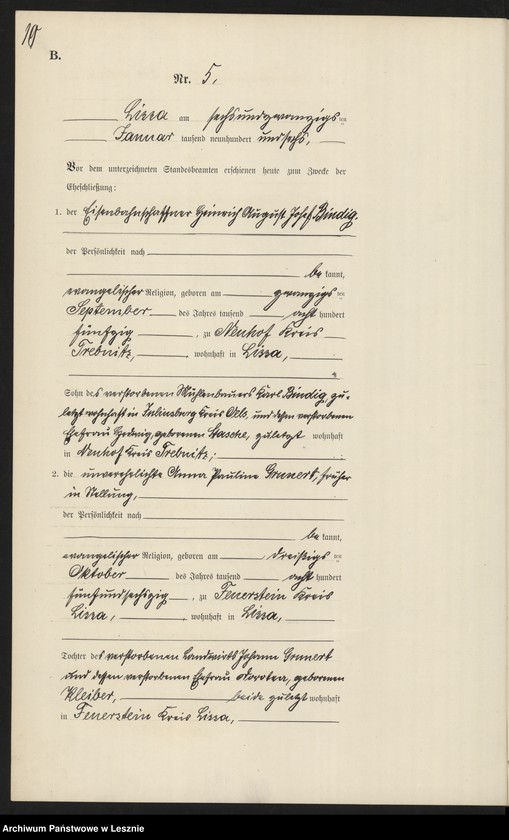 10
B.
Nr. 5.
Lissa am sechsundzwanzigs ten
Januar tausend neunhundert undsechs.
Vor dem unterzeichneten Standesbeamten erschienen heute zum Zwecke der
Eheschließung:
1. der Eisenbahnschaffner Heinrich August Josef Bindig,
der Persönlichkeit nach
be kannt,
evangelischer Religion, geboren am zwanzigs ten
September des Jahres tausend acht hundert
fünfzig, zu Neuhof Kreis
Trebnitz, wohnhaft in Lissa,
Sohn des verstorbenen Mühlenbauers Karl Bindig, zu-
letzt wohnhaft in Kreis Oels, und dessen verstorbenen
Ehefrau Hedwig, geborenen zuletzt wohnhaft
in Neuhof Kreis Trebnitz;
2. die unverehelichte Anna Pauline Grunert, früher
in Stellung,
der Persönlichkeit nach
be kannt,
evangelischer Religion, geboren am dreißigs ten
Oktober des Jahres tausend acht hundert
fünfundsechszig, zu Feuerstein Kreis
Lissa, wohnhaft in Lissa,
Tochter des verstorbenen Landwirts Johann Grunert
und dessen verstorbenen Ehefrau Dorotea, geborenen
Kleiber, beide zuletzt wohnhaft
in Feuerstein Kreis Lissa,
Archiwum Państwowe w Lesznie